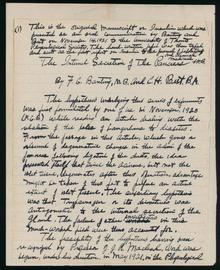 (1) This is the original manuscript on Insulin which was
presented as an oral communication by Banting and
Best on November 14/21 to the
Physiological Society.
The Internal Secretion of the Pancreas
By F. G. Banting, M.B. and C. H. Best B.A.
The hypothesis underlying this series of experiments
was first formulated by one of us in November 1920
(F.G.B) while reading an article dealing with the
relation of the isles of Langerhans to diabetes.
From the passage in this article, which gave a
résumé of degenerative changes in the acini of the
pancreas following ligation of the ducts, the idea
presented itself that since the acinous, but not the
islet tissue, degenerates after this operation advantage
might be taken of this fact to prepare an active
extract of islet tissue. The subsidiary hypothesis
was that trypsinogen or its derivatives was
antagonistic to the internal secretion of the
gland. The failure of other investigators in this
much-worked field was thus accounted for.
The feasibility of the hypothesis having been
recognized by Professor J. J. R. Macleod, work was
begun, under his direction in May 1921, in the Physiological